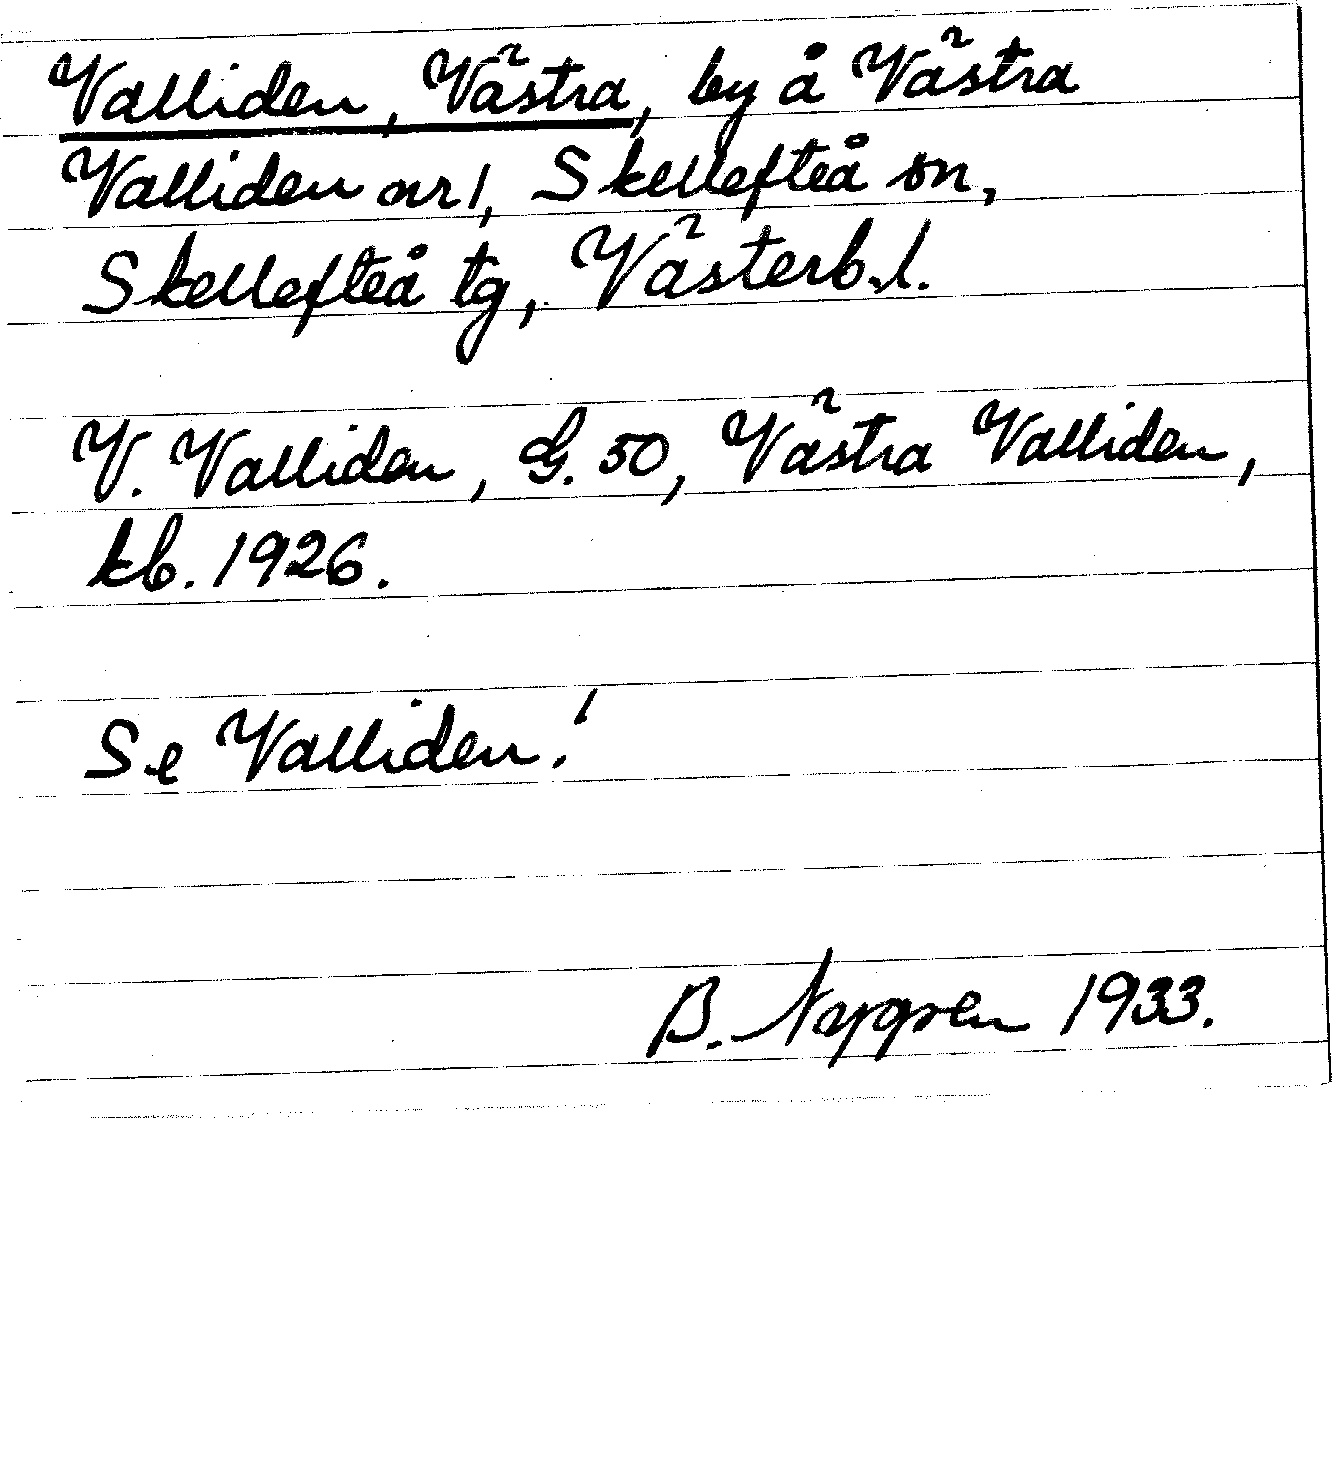 Valliden, Västra, by å Västra
Valliden nr 1, Skellefteå sn,
Skellefteå tg, Västerb. l.
V. Valliden, G. 50, Västra Valliden,
kb. 1926.
Se Valliden!
B. Nygren 1933.